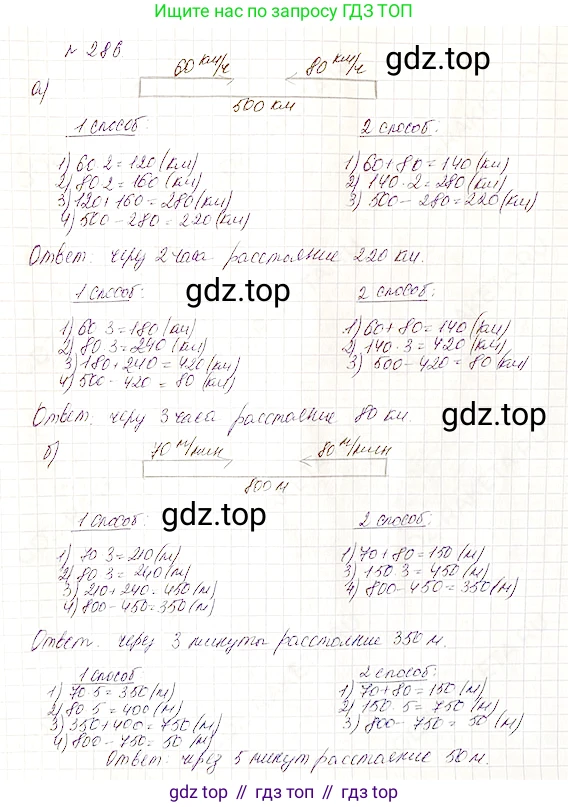 Ищите нас по запросу ГДЗ ТОП
№ 286
60 км/ч 80 км/ч
gdz.top
а)
500 км
1 способ: 2 способ:
1) 60·2=120 (км) 1) 60+80=140 (км)
2) 80·2=160 (км) 2) 140·2=280 (км)
3) 120+160=280 (км) 3) 500-280=220 (км)
4) 500-280=220 (км)
Ответ: через 2 часа расстояние 220 км.
1 способ: gdz.top 2 способ:
1) 60·3=180 (км) 1) 60+80=140 (км)
2) 80·3=240 (км) 2) 140·3=420 (км)
3) 180+240=420 (км) 3) 500-420=80 (км)
4) 500-420=80 (км)
Ответ: через 3 часа расстояние 80 км.
gdz.top
б) 70 м/мин 80 м/мин
800 м
1 способ: gdz.top 2 способ:
1) 70·3=210 (м) 1) 70+80=150 (м)
2) 80·3=240 (м) 3) 150·3=450 (м)
3) 210+240=450 (м) 4) 800-450=350 (м)
4) 800-450=350 (м)
Ответ: через 3 минуты расстояние 350 м.
1 способ: 2 способ:
1) 70·5=350 (м) 1) 70+80=150 (м)
2) 80·5=400 (м) 2) 150·5=750 (м)
3) 350+400=750 (м) 3) 800-750=50 (м)
4) 800-750=50 (м)
Ответ: через 5 минут расстояние 50 м.
gdz top // gdz top // gdz top // gdz top